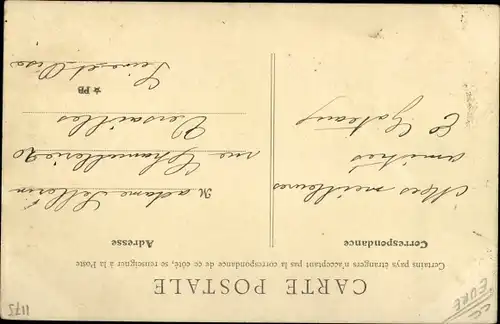 CARTE POSTALE
Certains pays étrangers n'acceptant pas la correspondance de ce côté, se renseigner à la Poste
Correspondance
Adresse
Mes meilleures
amitiés
E Gateau
Madame Sellerin
rue Chancellerie 20
Versailles
Seine et Oise
★ PB
EURE
1175